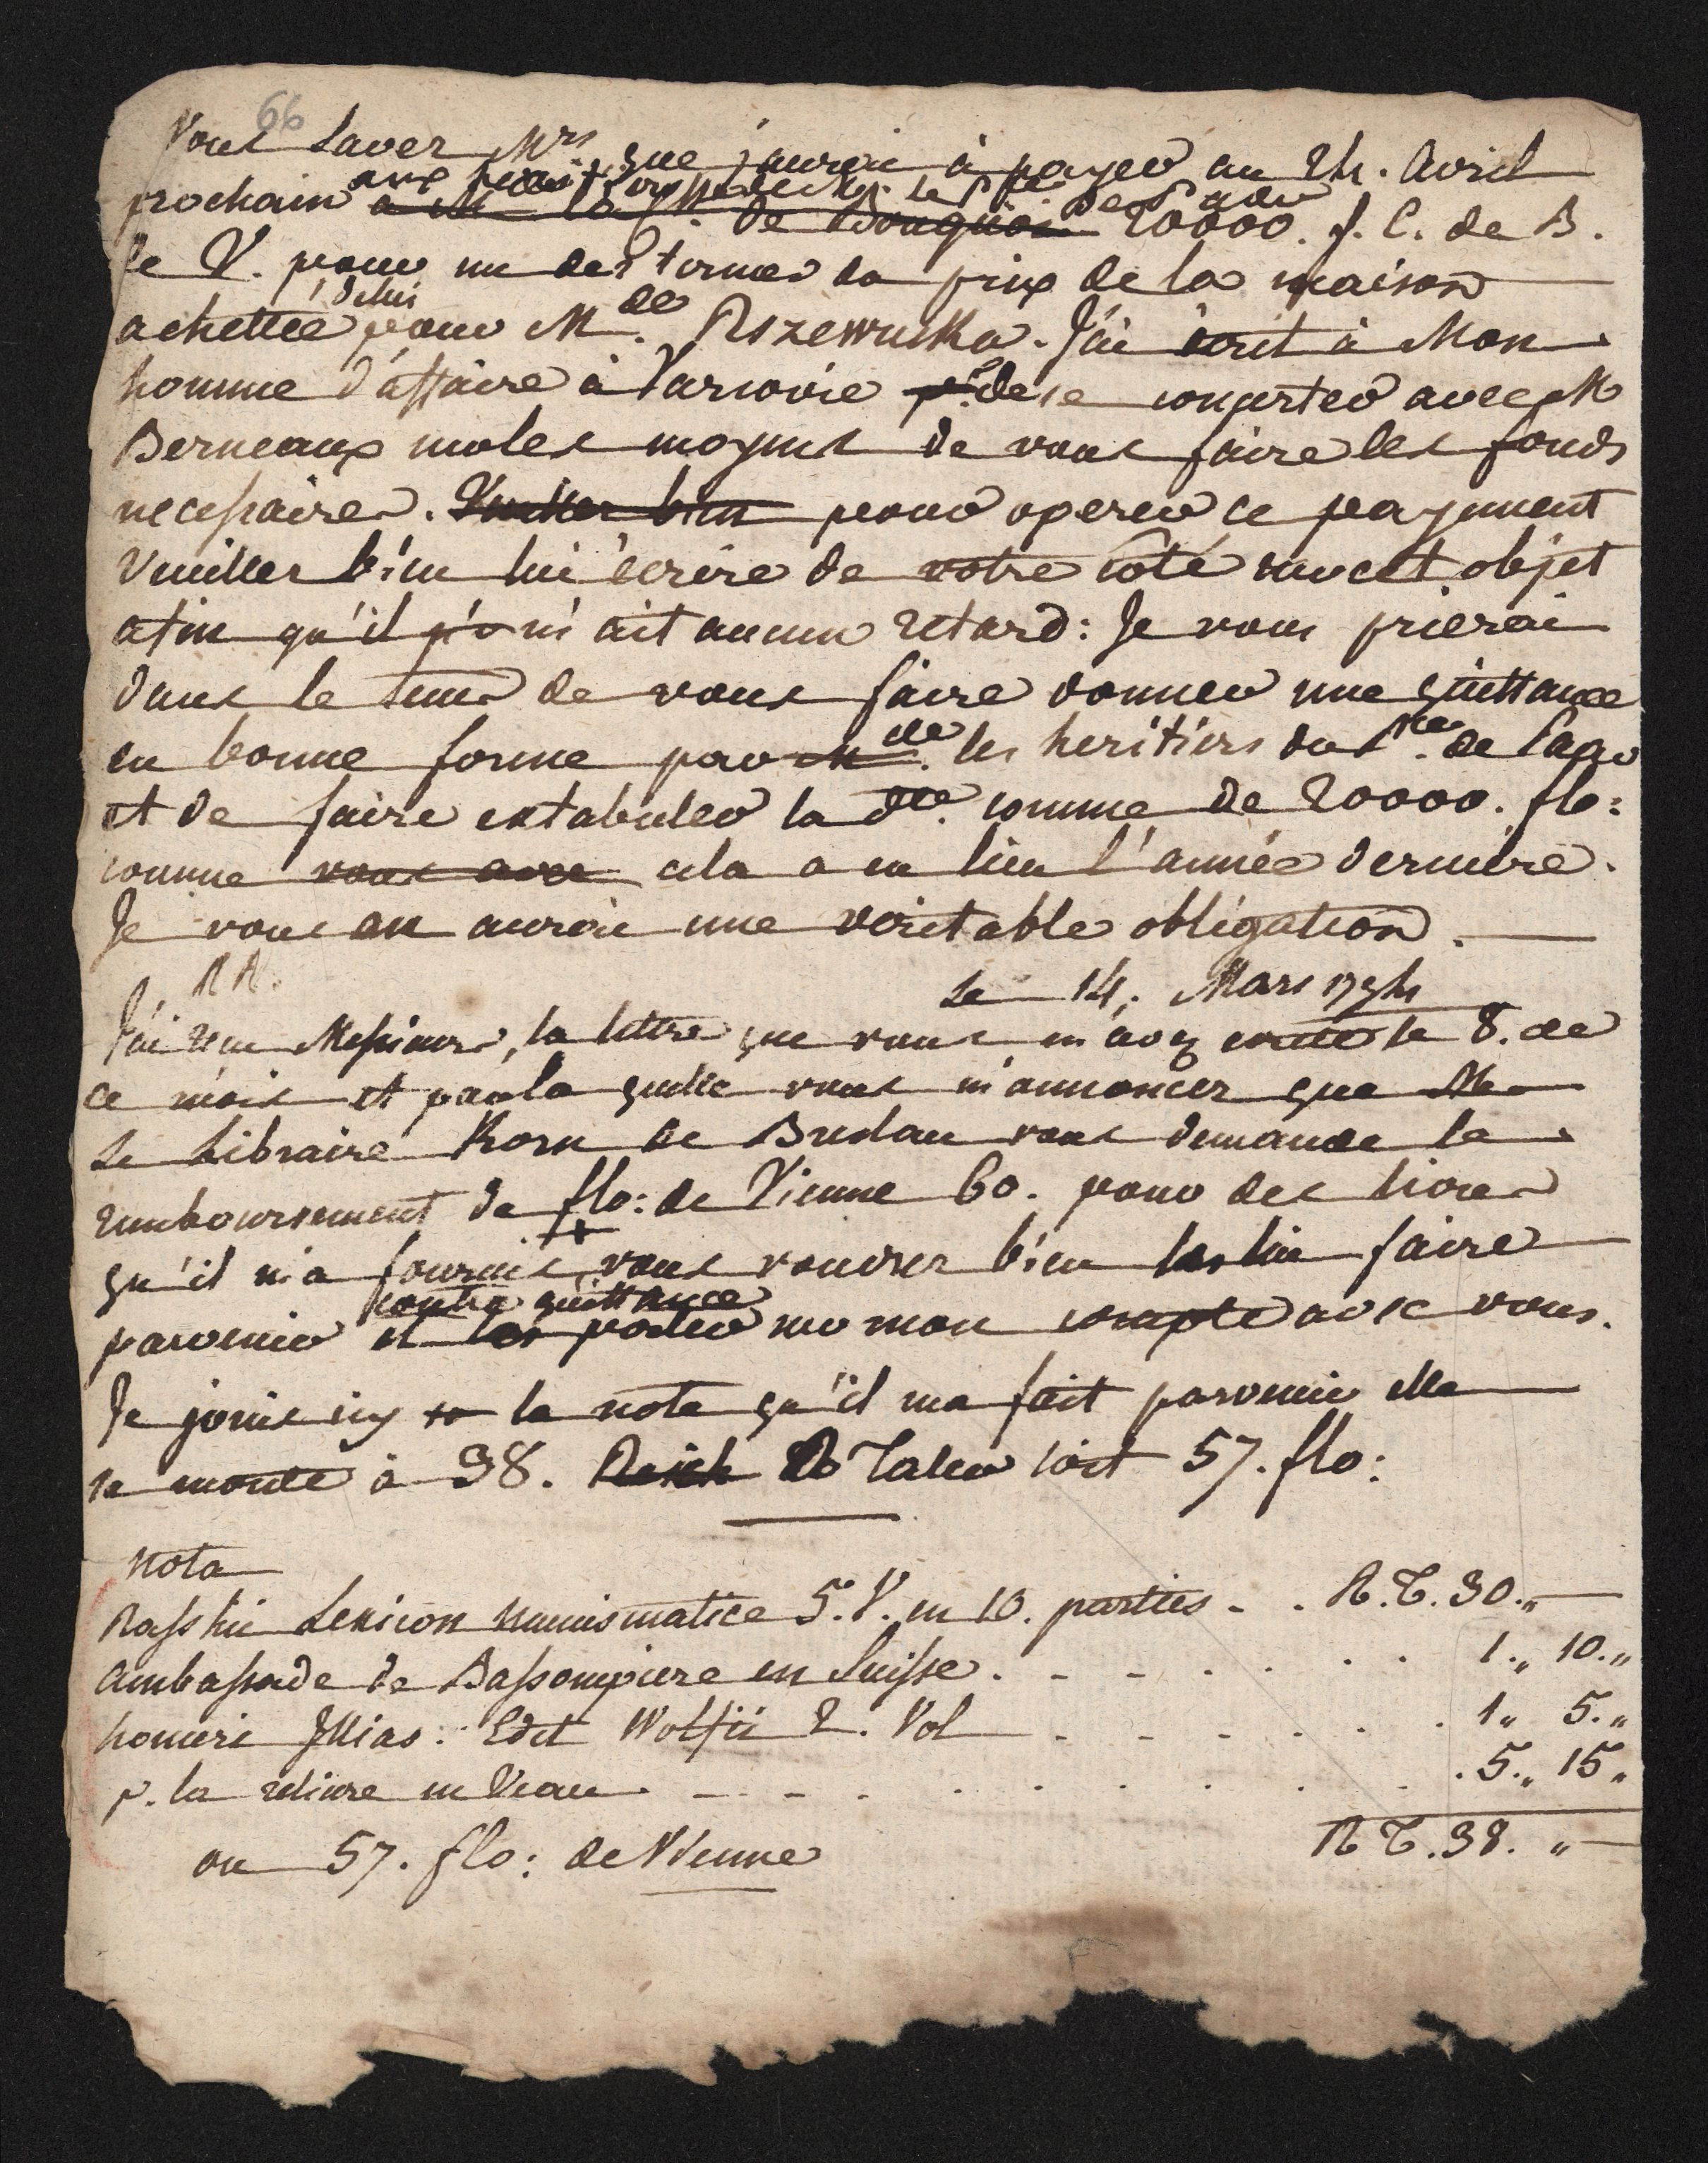 66
Vous Savez Mrs que j'aurai à payer au 24. Avril
aux heritiers de le Pce de Paar
prochain a M la de Bouquoi 20000. f. C. de B.
le V. pour un des termes du prix de la maison
de lui
achettée pour Mde Rszewuska. J'ai écrit à Mon
homme d'affaire à Varsovie de se concerter avec M
Berneaux sur les moyens de vous faire les fonds
necessaires. Veuillez bien pour operer ce payement
Veuillez bien lui écrire de votre coté sur cet objet
afin qu'il n'y ait aucun retard: Je vous prierai
dans le tems de vous faire donner une quittance
en bonne forme par Mde les heritiers du Pce de Paar
et de faire extabuler la dte somme de 20000. flo:
comme vous avez cela a eu lieu l'année derniere.
Je vous en aurai une veritable obligation.
RR.
Le 14. Mars 1794
J'ai reçu Messieurs, la lettre que vous m'avez ecritte le 8. de
ce mois et par la quelle vous m'annoncez que M
Le Libraire Korn de Breslau vous demande le
remboursement de flo: de Vienne 60. pour des livres
qu'il m'a fournis, vous voudrez bien les lui faire
contre quittance
parvenir et les porter sur mon compte avec vous.
Je joins icy la note qu'il m'a fait parvenir elle
se monte à 38. Reich R Taler soit 57. flo:
Nota
Rasshii Lexicon Numismatice 5. V. en 10. parties - . R. T. 30.,,
Ambassade de Bassompiere en Suisse. - - . . . . 1.,, 10.,,
homeri Illias: Edit Wolfii 2. Vol - - - . . . 1,, 5.,,
p. la reliure en Veau. - - . . . . . 5.,, 15,,
R T. 38. ,,
ou 57. flo: de Vienne